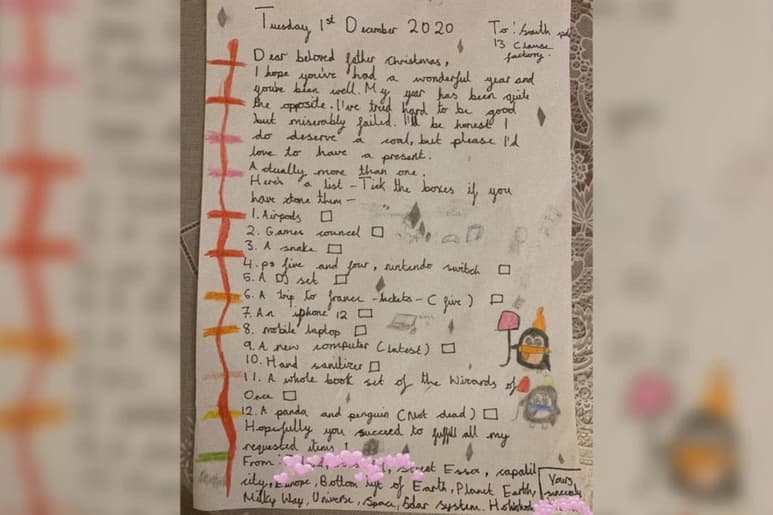 Tuesday 1st December 2020
To: South pole
13 Clause
factory.
Dear beloved father christmas,
I hope you've had a wonderful year and
you've been well. My year has been quite
the opposite. I've tried hard to be good
but miserably failed. I'll be honest I
do deserve a coal, but please I'd
love to have a present.
Actually more than one.
Here's a list - Tick the boxes if you
have done them -
1. Airpods
2. Games councel
3. A snake
4. ps five and four, nintendo switch
5. A DJ set
6. A trip to france - tickets - (five)
7. An iphone 12
8. mobile laptop
9. A new computer (latest)
10. Hand sanitizer
11. A whole book set of the Wizards of
Once
12. A panda and penguin (Not dead)
Hopefully you succeed to fulfill all my
requested items!
From: street Essex, capatil
city, Europe, Bottom of Earth, Planet Earth,
Milky Way, Universe, Space, Solar system.
Yours
sincerely